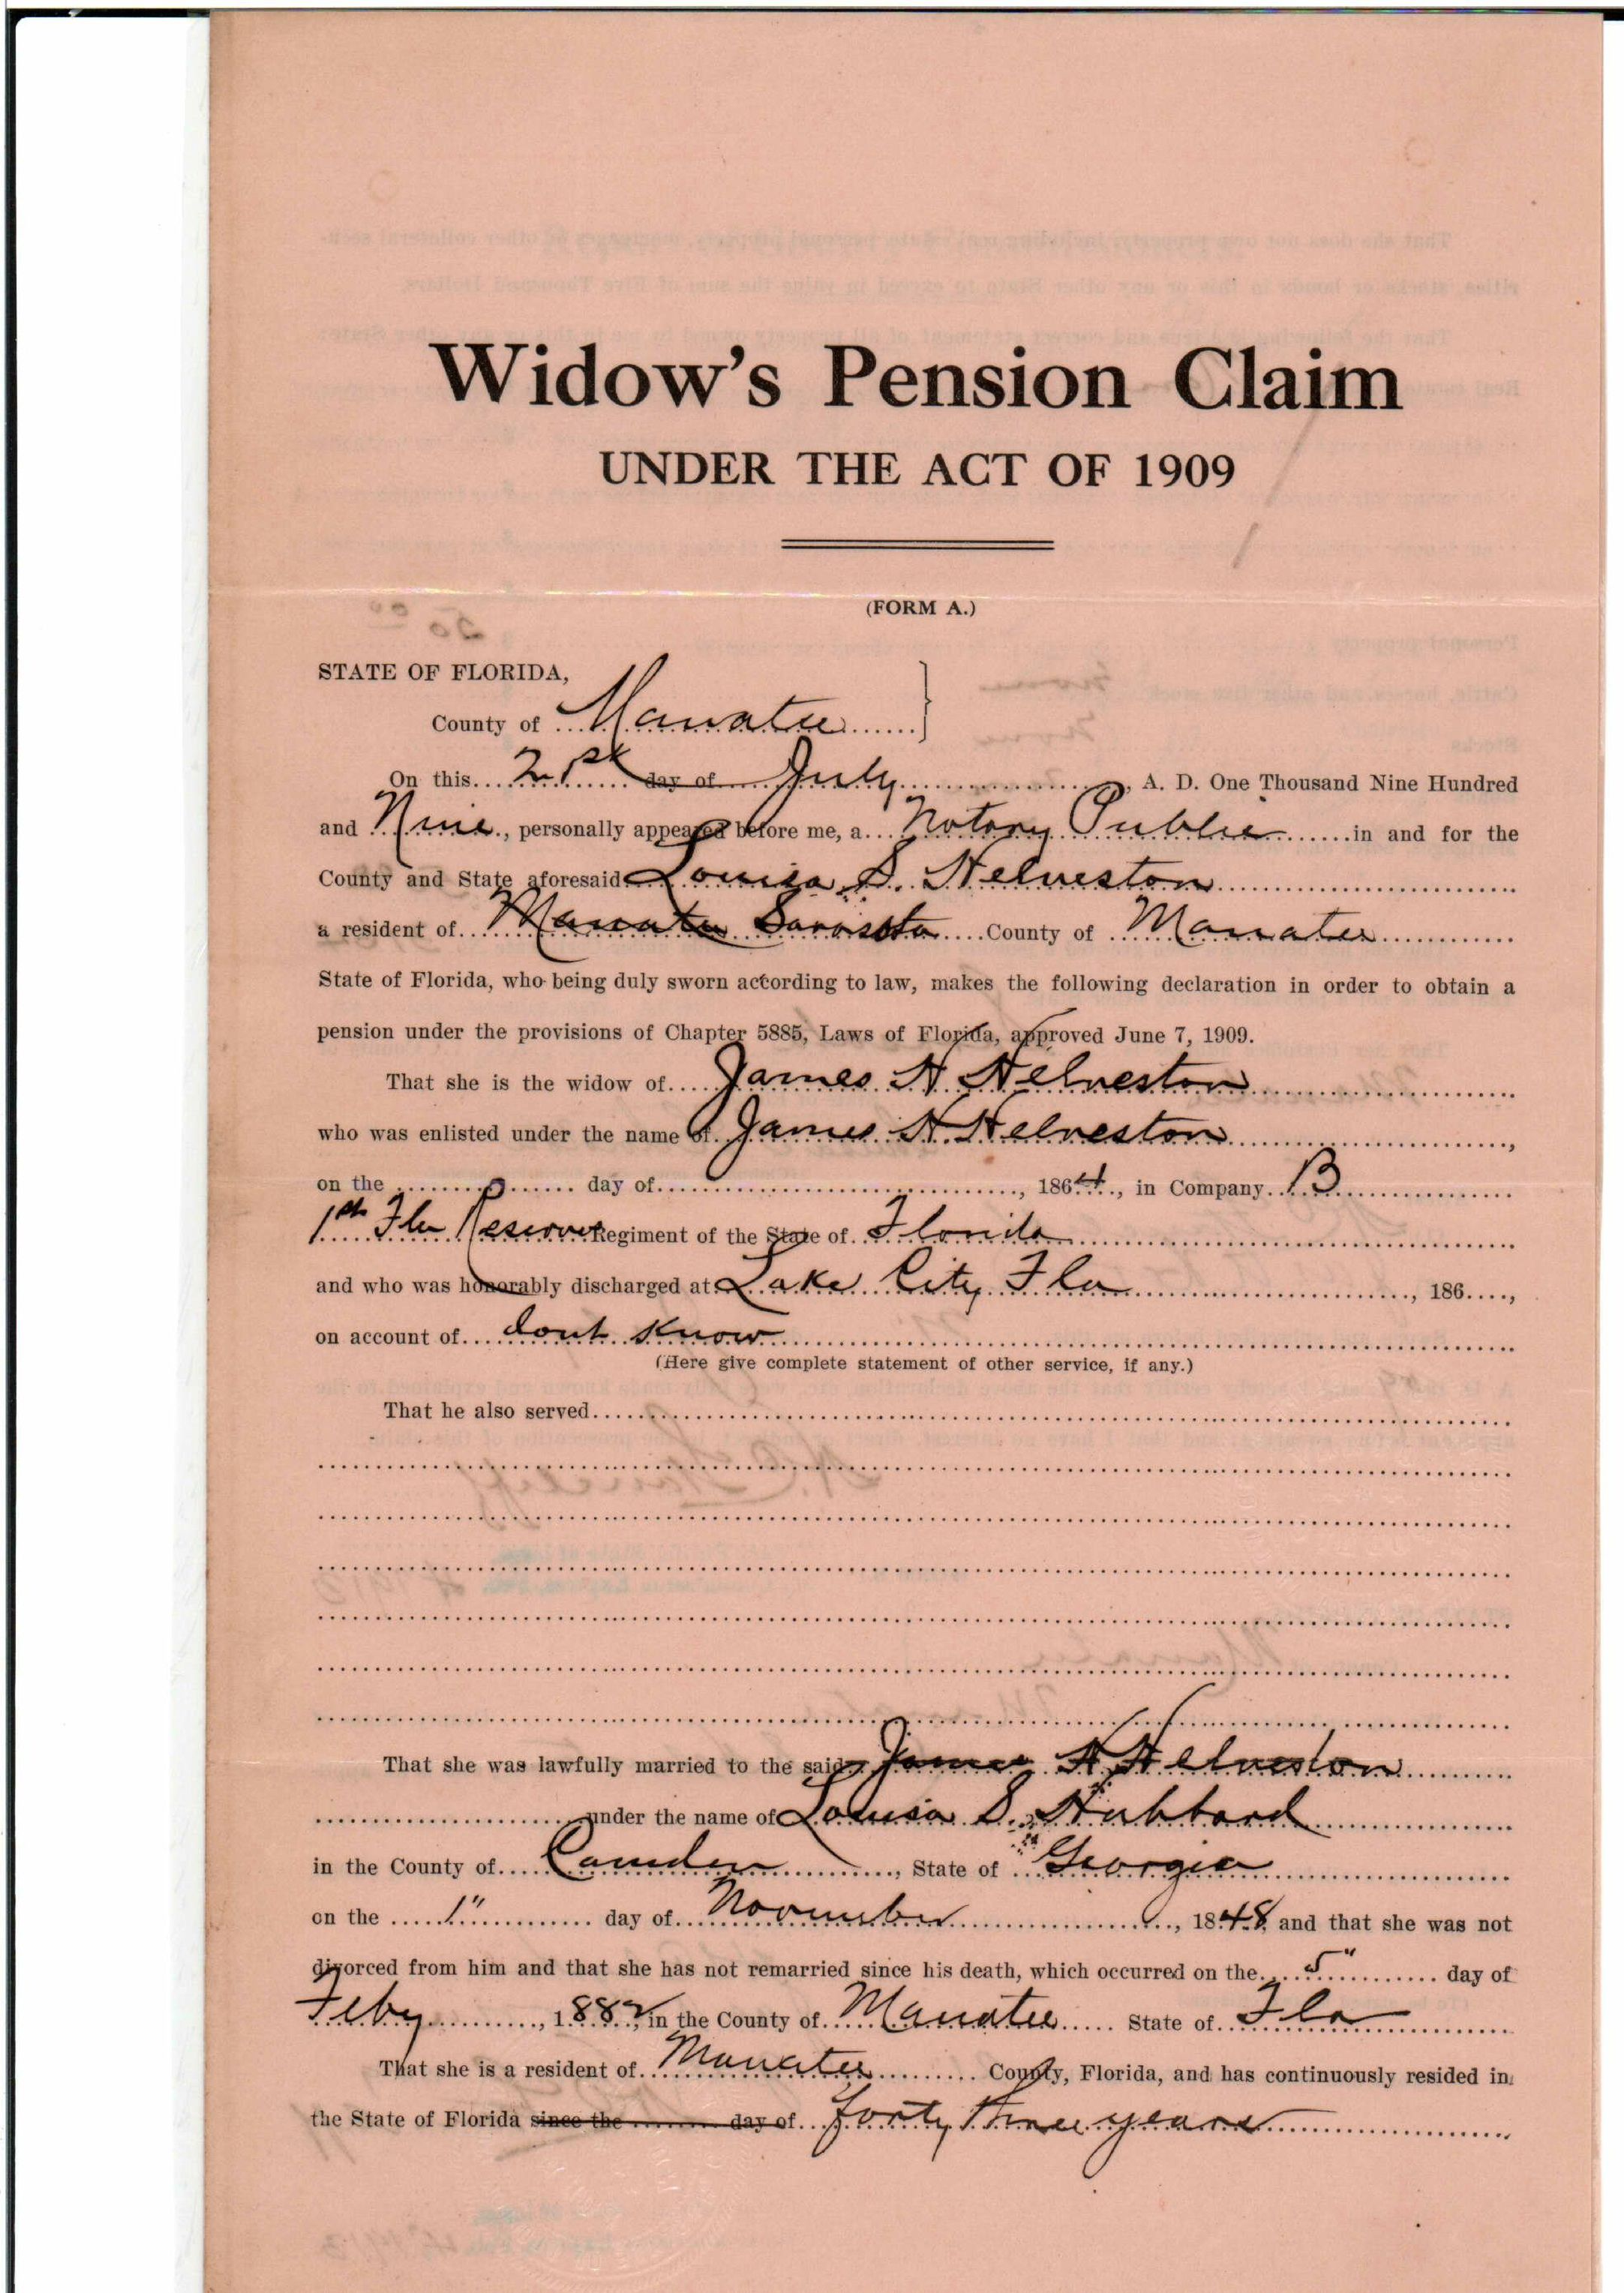 Widow's Pension Claim
UNDER THE ACT OF 1909
(FORM A.)
STATE OF FLORIDA,
County of Manatee
On this 21st day of July, A. D. One Thousand Nine Hundred
and Nine, personally appeared before me, a Notary Public in and for the
County and State aforesaid Louisa S. Helveston
a resident of Manatee Sarasota County of Manatee
State of Florida, who being duly sworn according to law, makes the following declaration in order to obtain a
pension under the provisions of Chapter 5885, Laws of Florida, approved June 7, 1909.
That she is the widow of James H Helveston
who was enlisted under the name of James H Helveston,
on the day of, 1864, in Company B
1st Fla Reserve Regiment of the State of Florida
and who was honorably discharged at Lake City Fla, 186,
on account of dont know
(Here give complete statement of other service, if any.)
That he also served
That she was lawfully married to the said James H Helveston
under the name of Louisa S. Hubbard
in the County of Camden, State of Georgia
on the 1" day of November, 1848, and that she was not
divorced from him and that she has not remarried since his death, which occurred on the 5" day of
Feby, 1882, in the County of Manatee State of Fla
That she is a resident of Manatee County, Florida, and has continuously resided in
the State of Florida since the day of forty three years